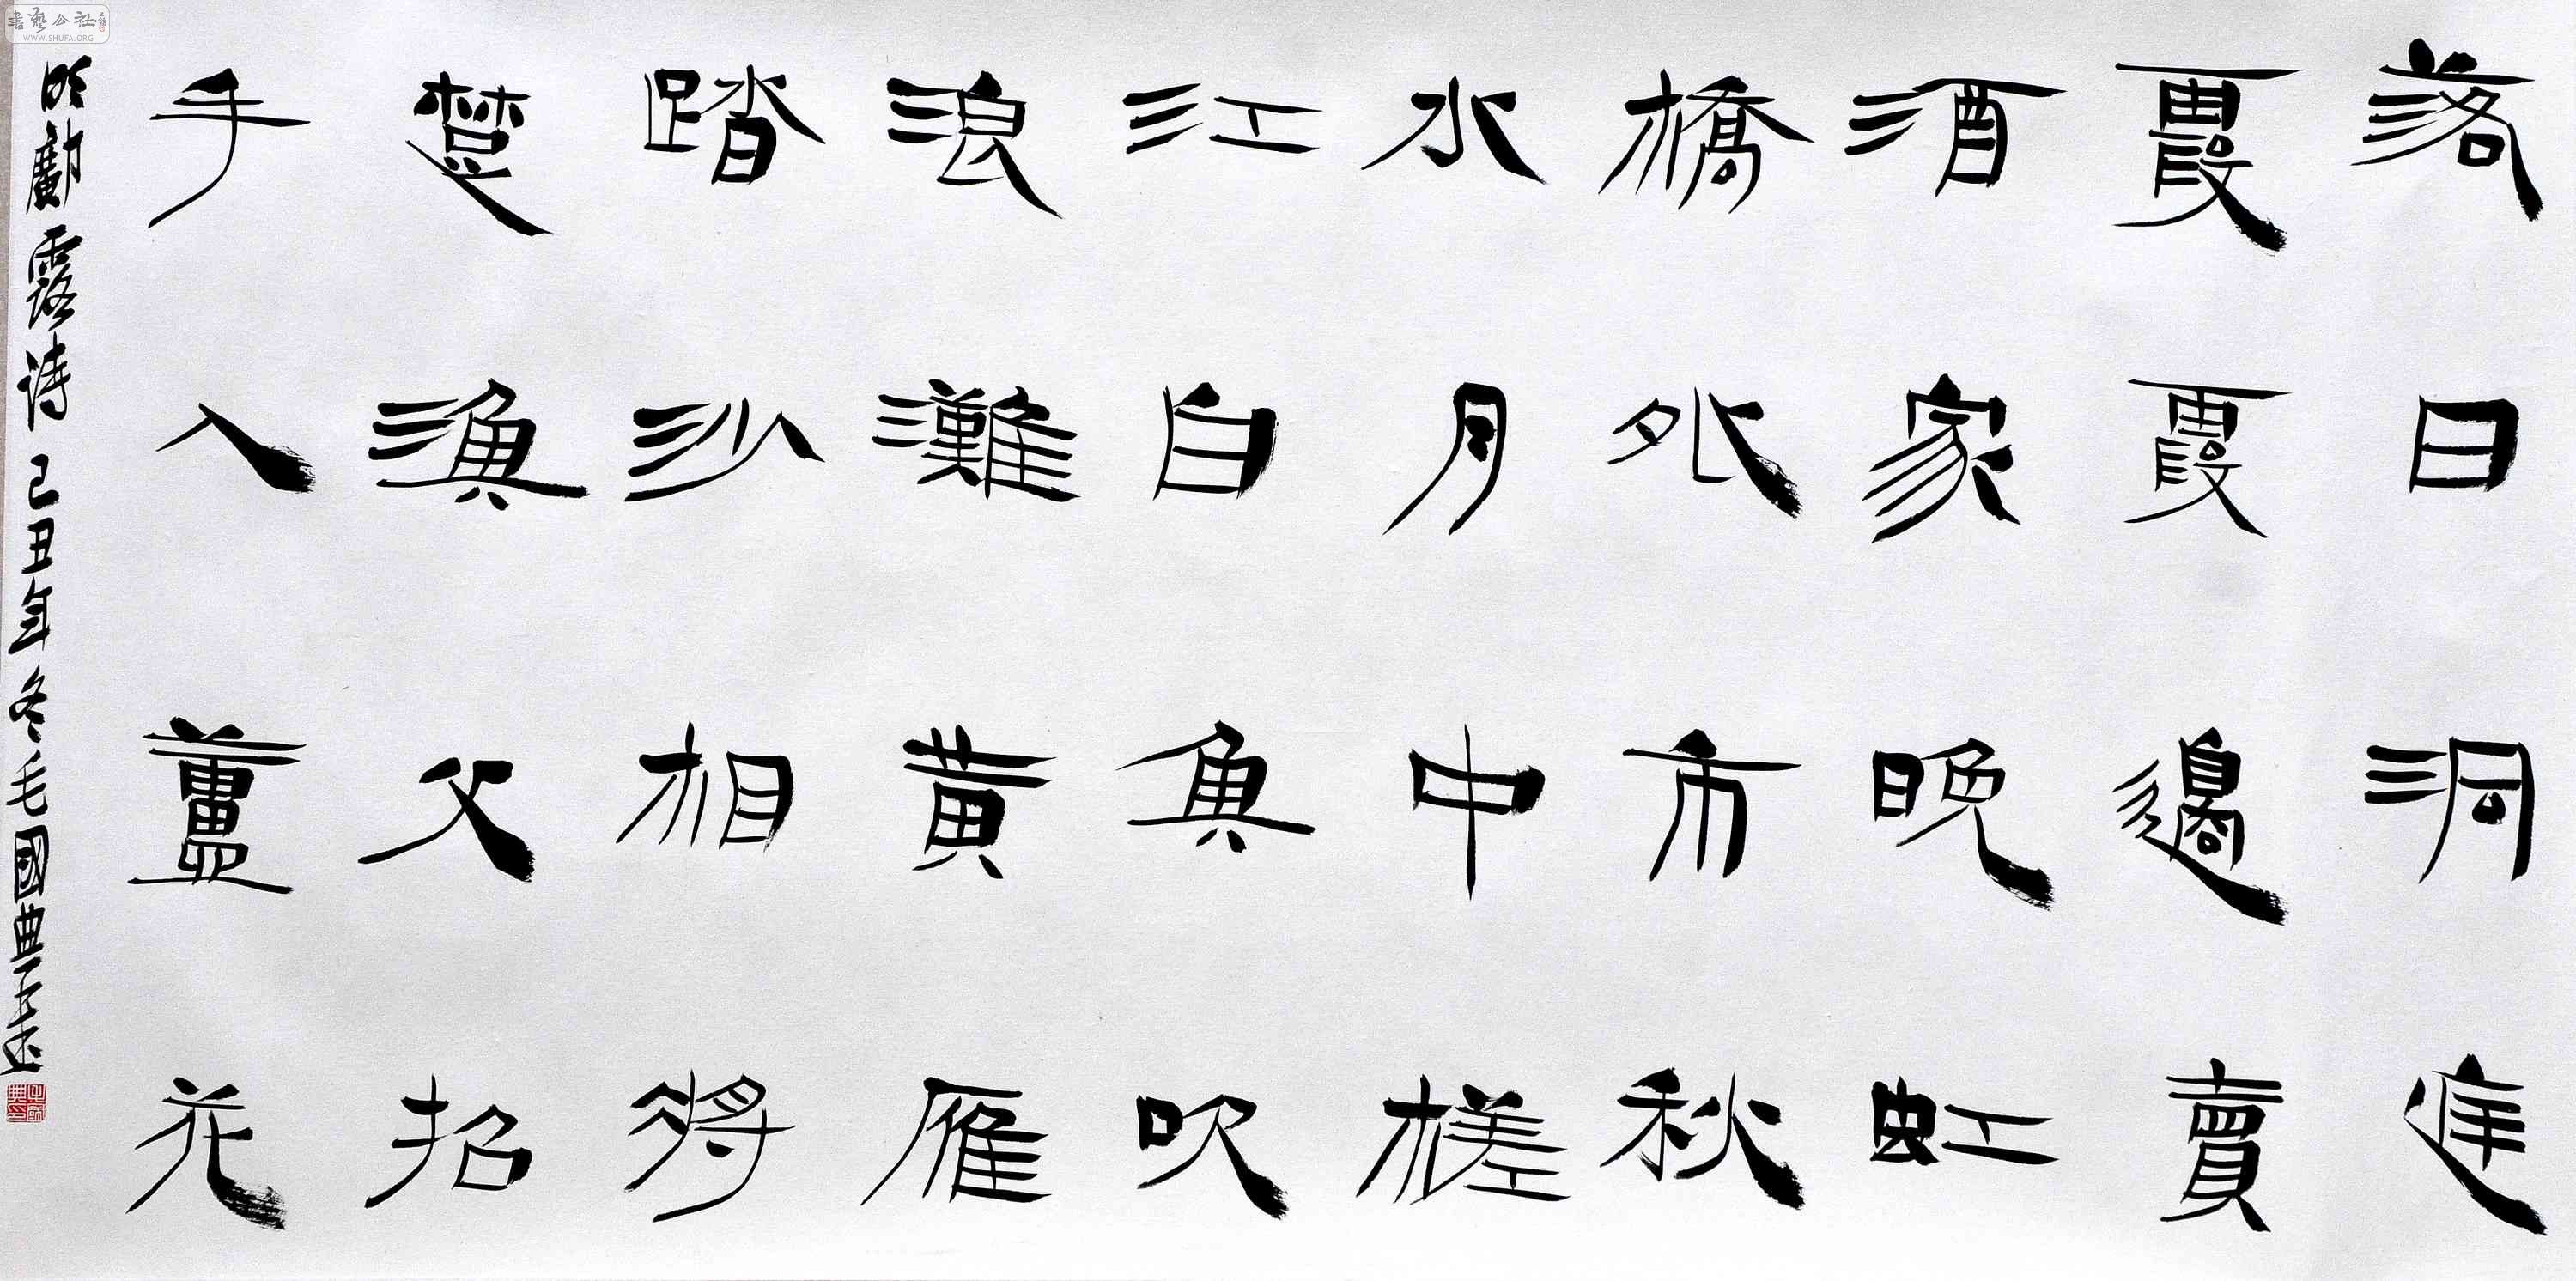 落日洞庭
霞霞邊賣
酒家晚虹
橋外市秋
水月中槎
江白魚吹
浪灘黃雁
踏沙相將
楚漁父招
手入蘆花
明鄺露詩 己丑年冬毛國典
書藝公社
WWW.SHUFA.ORG